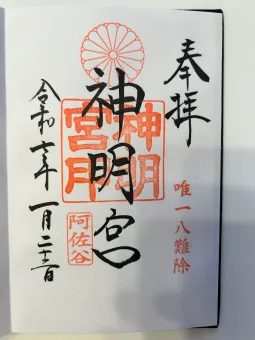 奉拝
唯一八難除
神明宮
神明
宮
阿佐谷
令和
年一月二十
日